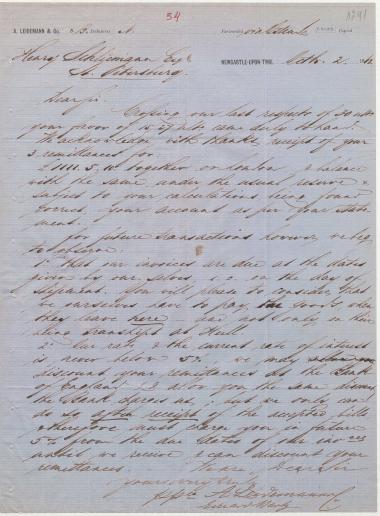 54
1791
A. LEIDEMANN & Co. B. A
Forwarded via Ostende Copied
Henry Schliemann Esqr
St. Petersburg.
NEWCASTLE-UPON-TYNE, Octb. 2.
Dear Sir
Copying our last respects of 30 ulto
your favor of 15/27 ulto came duly to hand.
We acknowledge with thanks receipt of your
3 remittances for
£1111.5.10 together on London & balance
with the same, under the usual reserve &
subject to your calculations being found
correct, your account as per your state
ment.
For future transactions however we beg
to observe
1° That our invoices are due at the dates
given by our selves, i.e. on the day of
shipment. You will please to consider that
we ourselves have to pay the goods when
they leave here and not only on their
being transhipd at Hull
2° Our rate & the current rate of interest
is never below 5%. we may
discount your remittances at the Bank
of England & allow you the same discount
the Bank charges us, but we only can
do so after receipt of the accepted bills
& therefore must charge you in future
5% from the due dates of our invoices
until we receive & can discount your
remittances. We are, Dear Sir
yours very truly
A. Leidemann & Co